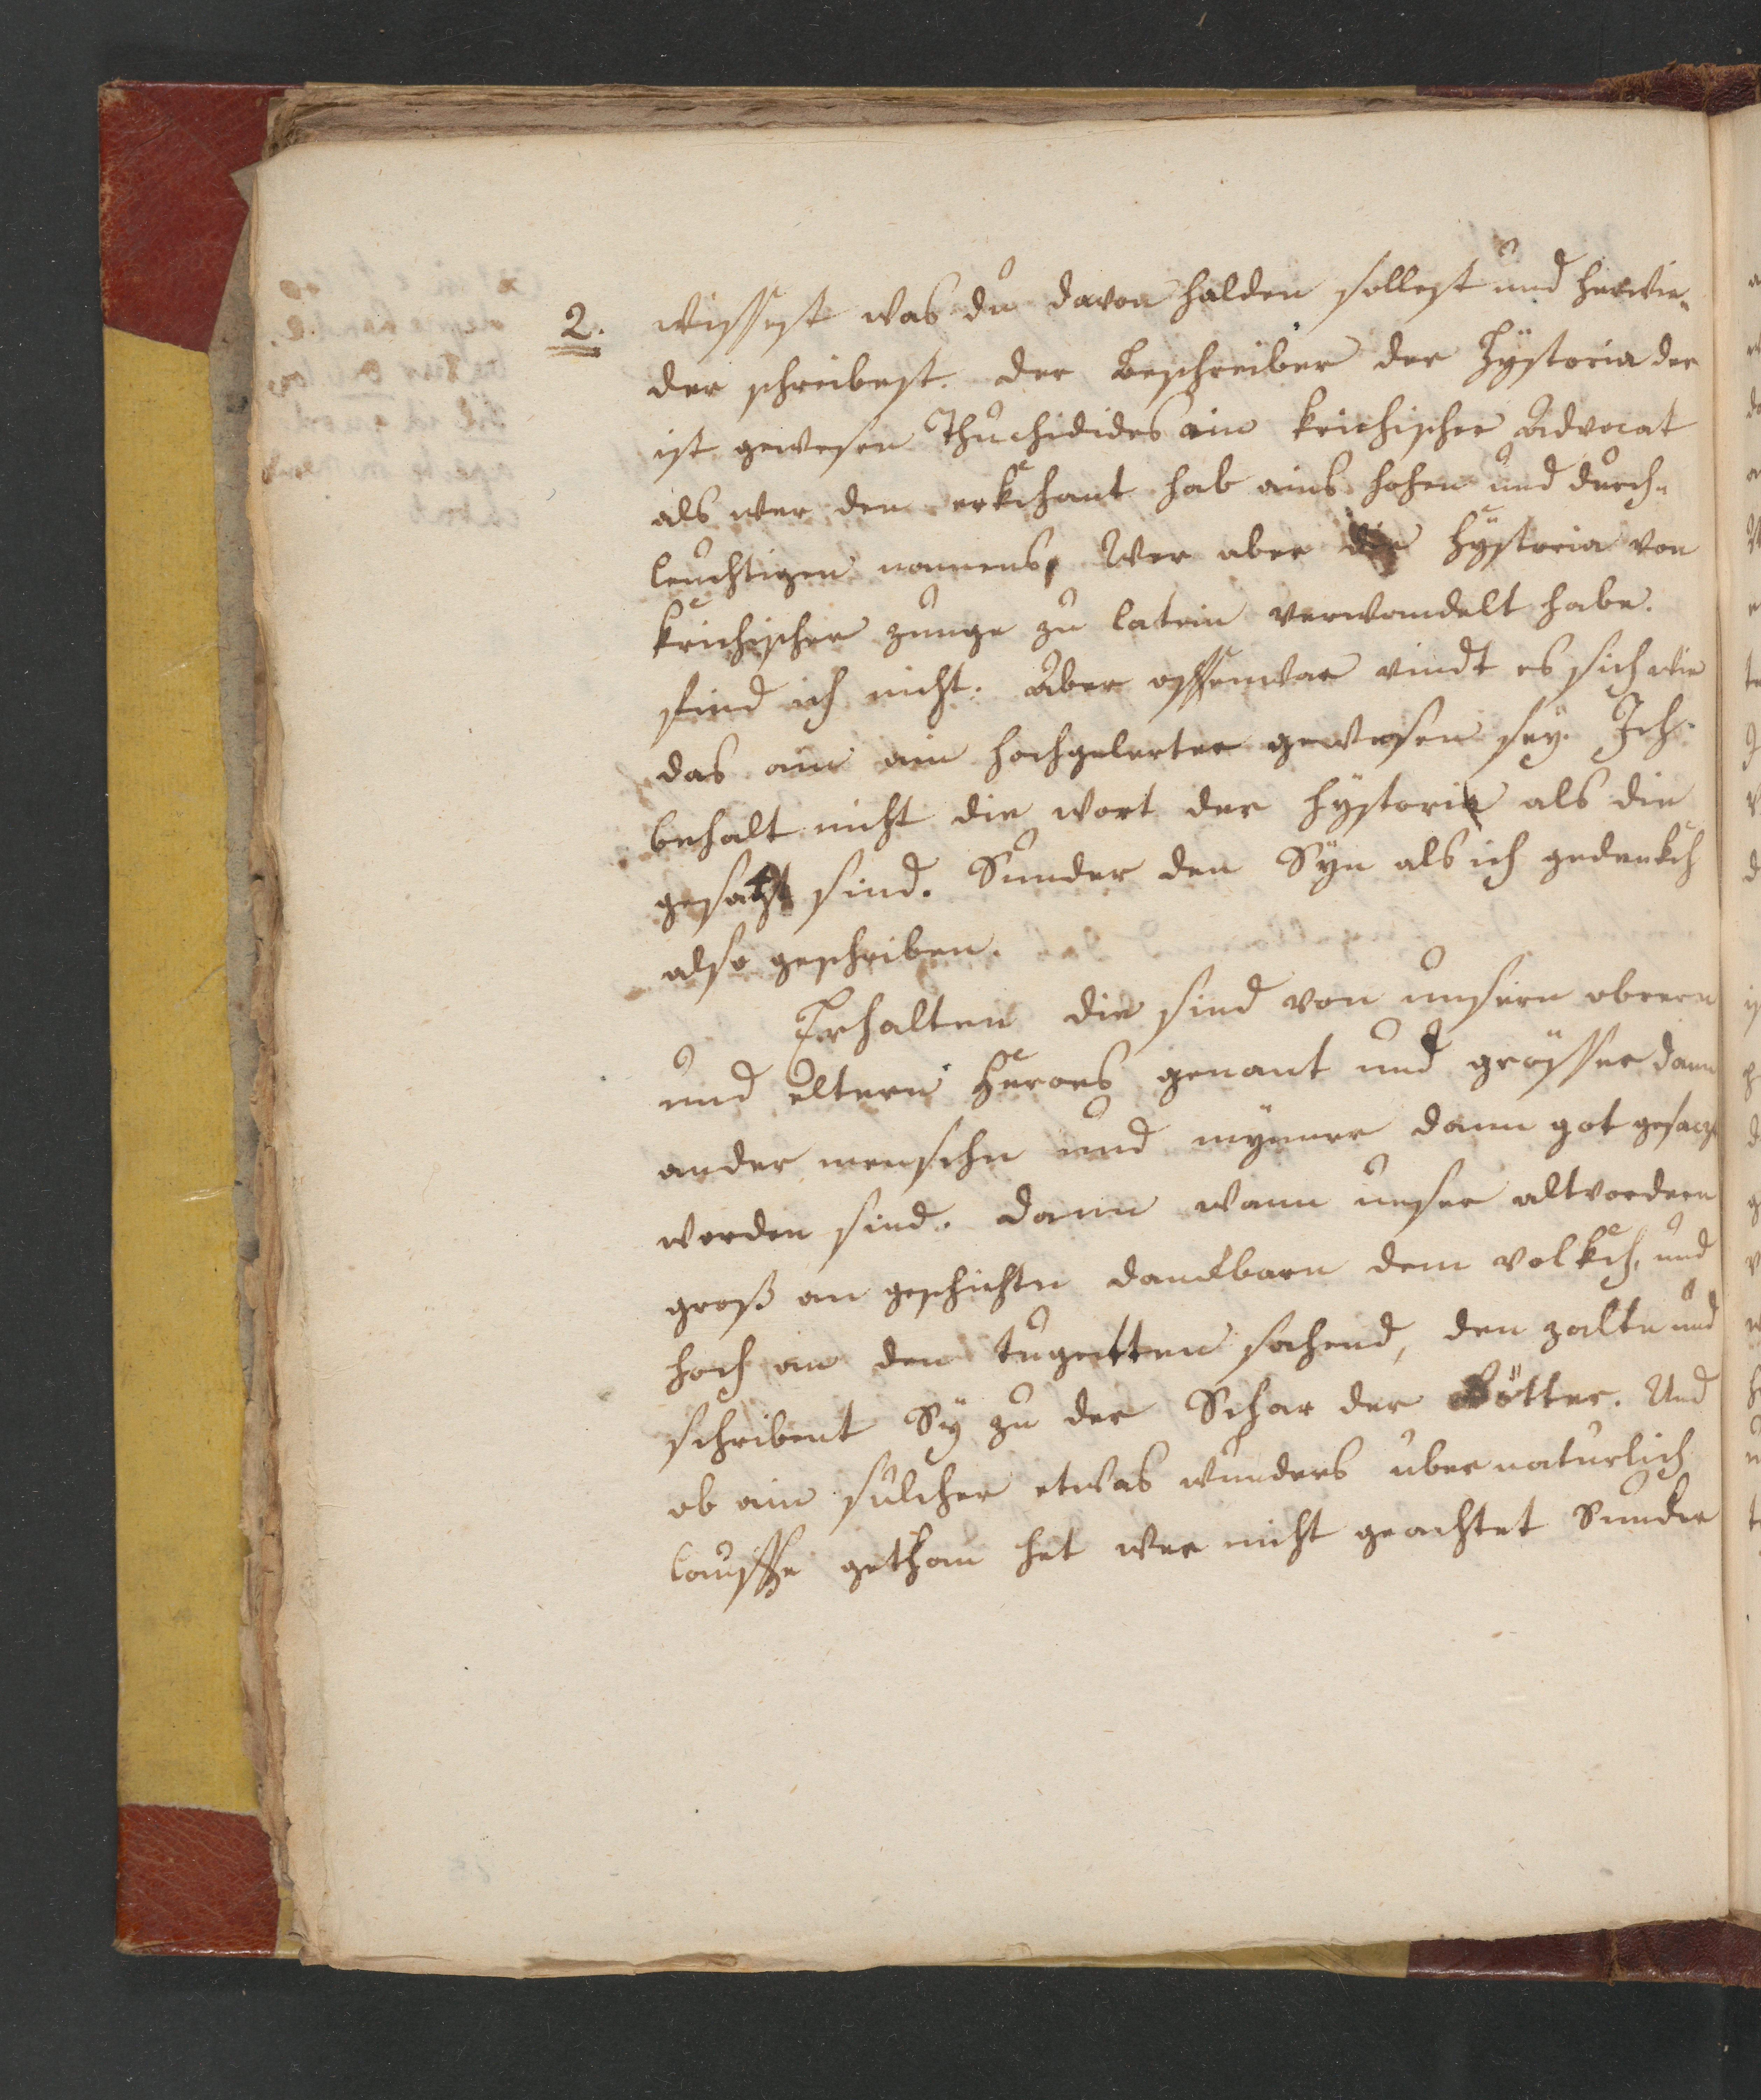 2. wissest was du davon halden sollest und herwie-
der schreibest. der Beschreiber der Hÿstoria der
ist gewesen Thuchidides ain krichischer Advocat
als wer den erkchant hab ains hohen und durch-
leuchtigen namens, Wer aber die Hÿstoria von
krichischer zunge zu latein verwandelt habe.
find ich nicht. Aber offenwar vindt es sich wie
das ain ain hochgelerter gewesen seÿ. Ich
behalt nicht die wort der hÿstorie als die
gesatzt sind. Sunder den Sÿn als ich gedenkch
also geschriben.
die sind von unsern obrern
und eltern heroes genant und grösser dann
ander menschn und mÿnner dann got gesaczt
worden sind. dann wann unser altvordern
groß an geschichtn dankbarn dem volkch, und
hoch an den tugentten sahend, den zaltn und
schribent Sÿ zu der Schar der Götter. Und
ob ain sulcher etwas wunders ubernaturlich
lauffe gethan het wer nicht geachtet Sunder